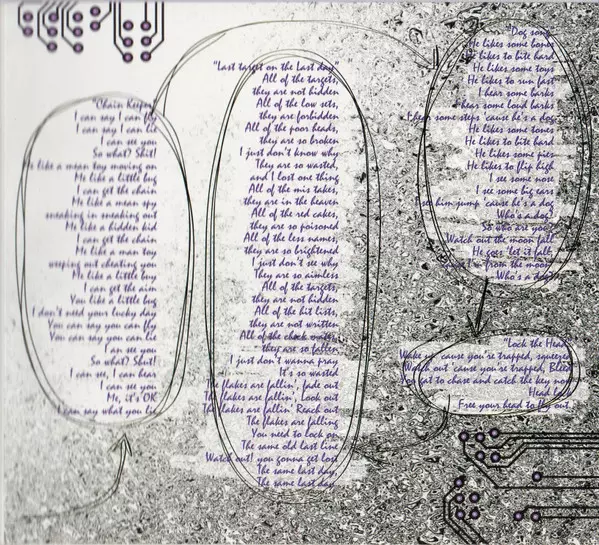 "Chain Keeper"
I can say I can fly
I can say I can lie
I can see you
So what? Shit!
He like a mean toy moving on
Me like a little bug
I can get the chain
Me like a mean spy
sneaking in sneaking out
Me like a hidden kid
I can get the chain
Me like a man toy
weeping out cheating you
Me like a little bug
I can get the aim
You like a little bug
I don't need your lucky day
You can say you can fly
You can say you can lie
I an see you
So what? Shut!
I can see, I can hear
I can see you
Me, it's OK
I can say what you lie
"Last target on the Last day"
All of the targets,
they are not hidden
All of the low sets,
they are forbidden
All of the poor heads,
they are so broken
I just don't know why
They are so wasted,
and I lost one thing
All of the mis takes,
they are in the heaven
All of the red cakes,
they are so poisoned
All of the less names,
they are so brightened
I just don't see why
They are so aimless
All of the targets,
they are not hidden
All of the hit lists,
they are not written
All of the
they are so fallen
I just don't wanna pray
It's so wasted
The flakes are fallin', fade out
The flakes are fallin', Look out
The flakes are fallin' Reach out
The flakes are falling
You need to lock on
The same old last line
Watch out! you gonna get lost
The same last day,
The same last day
"Dog song"
He likes some bones
He likes to bite hard
He likes some toys
He likes to run fast
I hear some barks
I hear some loud barks
I hear some steps 'cause he's a dog
He likes some tones
He likes to bite hard
He likes some pies
He likes to flip high
I see some nose
I see some big ears
I see him jump 'cause he's a dog
Who's a dog?
So who are you?
Watch out the moon fall
He goes 'let it fall,
from the moon
Who's a dog?
"Lock the Head"
Wake up 'cause you're trapped, squeezed
Watch out 'cause you're trapped, Bleed
You gat to chase and catch the key now
Head
Free your head to fly out